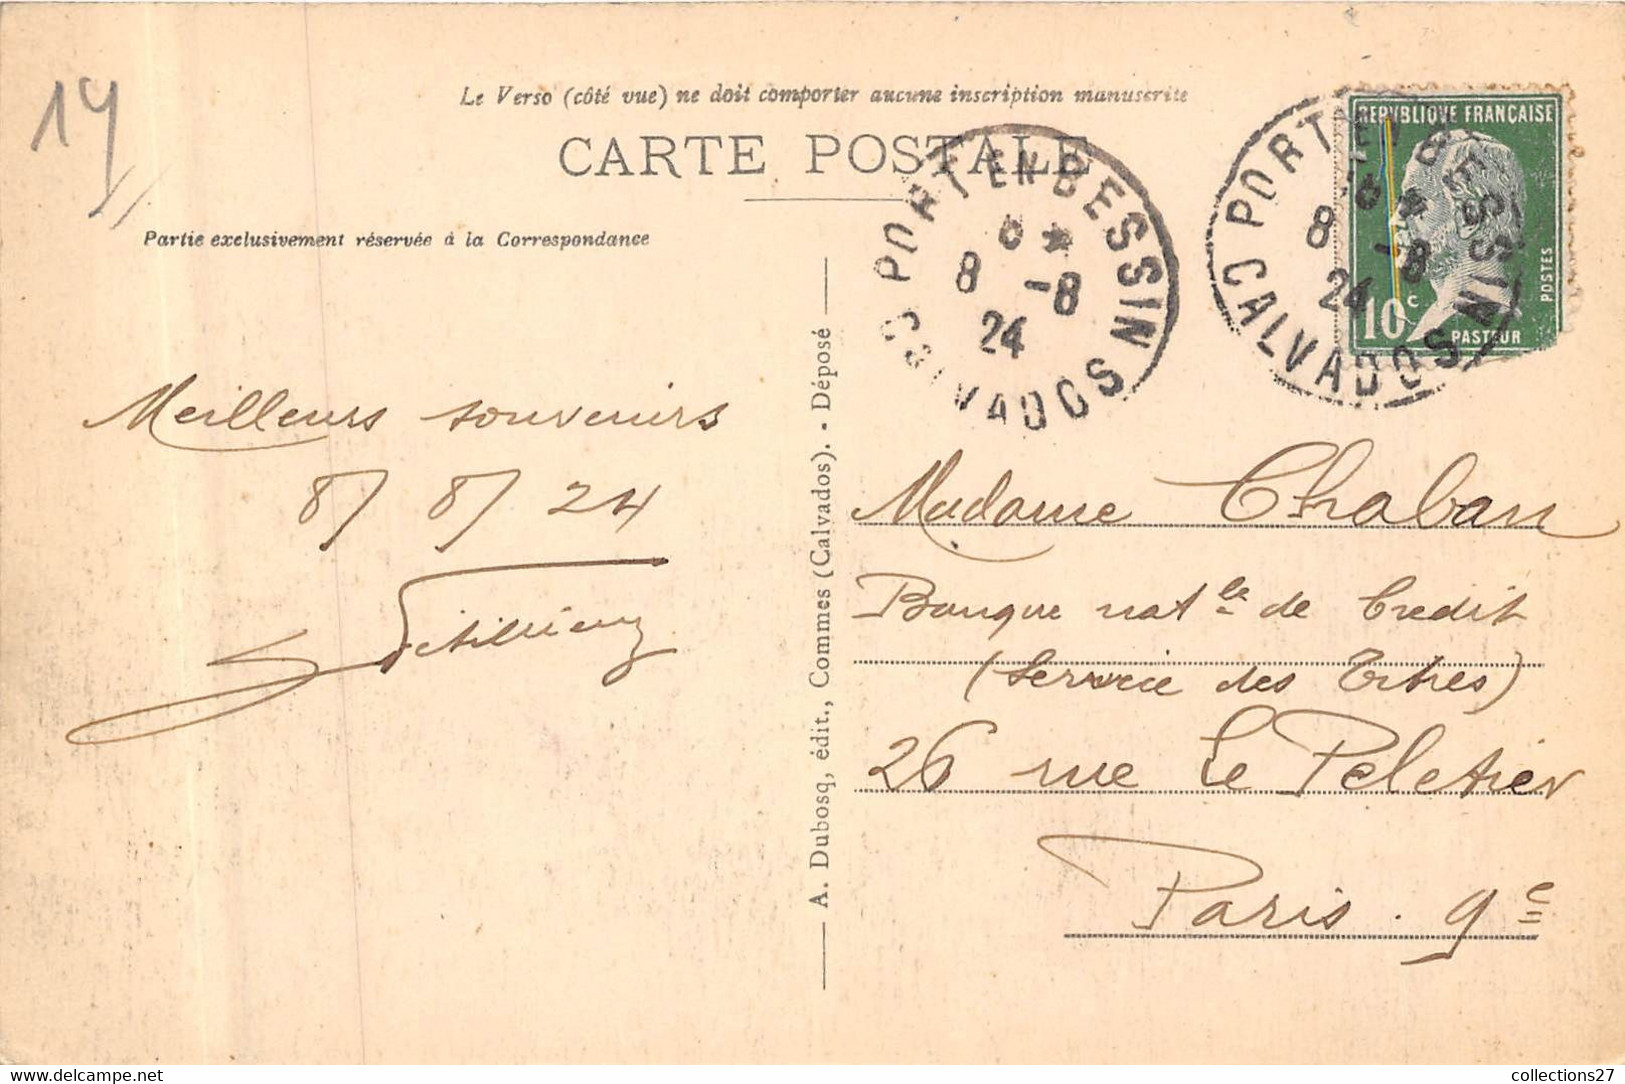 14
Le Verso (côté vue) ne doit comporter aucune inscription manuscrite
CARTE POSTALE
Partie exclusivement réservée à la Correspondance
PORT EN BESSIN
8 -8
24
CALVADOS
PORT EN BESSIN
8 -8
24
CALVADOS
REPUBLIQUE FRANÇAISE
POSTES
10c
PASTEUR
Meilleurs souvenirs
8/ 8/ 24
A. Dubosq, édit., Commes (Calvados). - Déposé
Madame Chaban
Banque natle de Credit
(Service des Titres)
26 rue Le Peletier
Paris . 9e
collections27